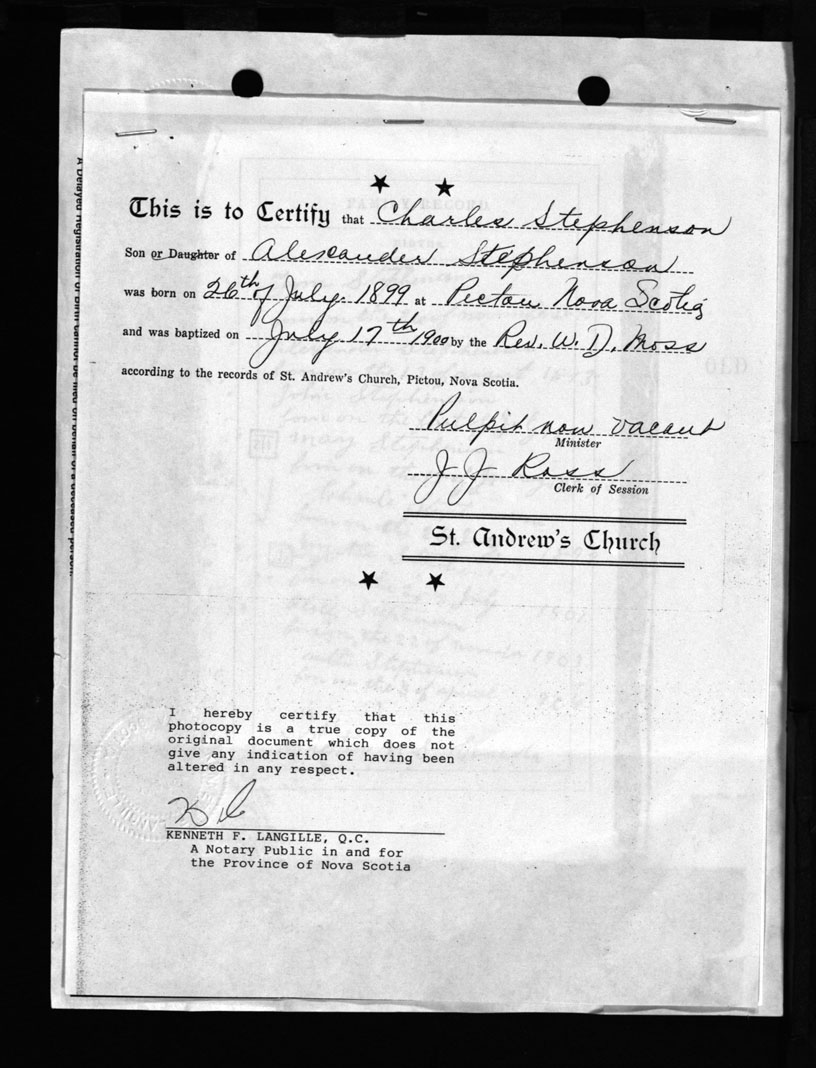 This is to Certify that Charles Stephenson
Son or Daughter of Alexander Stephenson
was born on 26th of July. 1899 at Pictou Nova Scotia
and was baptized on July 17th 1900 by the Rev. W. D. Moss
according to the records of St. Andrew's Church, Pictou, Nova Scotia.
Pulpit now vacant
Minister
J J Ross
Clerk of Session
St. Andrew's Church
I hereby certify that this
photocopy is a true copy of the
original document which does not
give any indication of having been
altered in any respect.
KENNETH F. LANGILLE, Q.C.
A Notary Public in and for
the Province of Nova Scotia
A Delayed Registration of Birth cannot be filed on behalf of a deceased person.
FAMILY RECORD
OLD
John Stephenson
Mary Stephenson